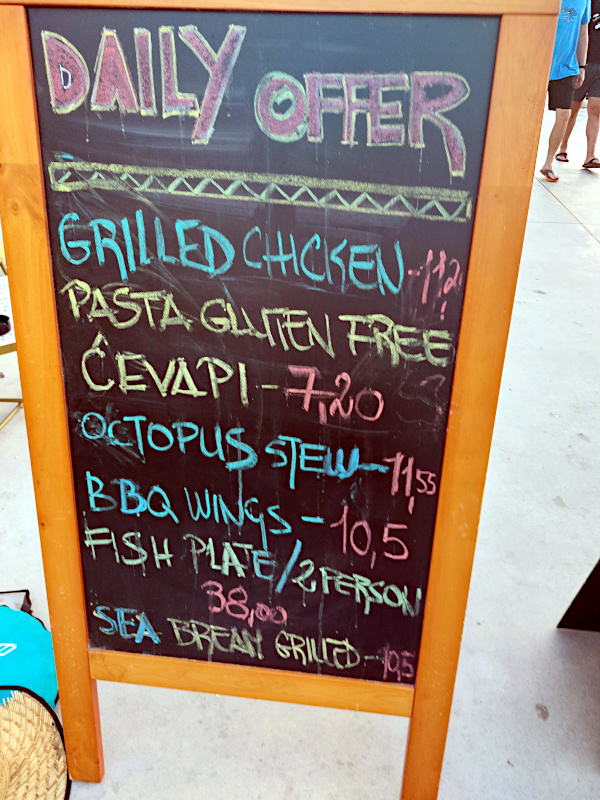 DAILY OFFER
GRILLED CHICKEN -11,2
PASTA GLUTEN FREE
ĆEVAPI - 7,20
OCTOPUS STEW - 11,55
BBQ WINGS - 10,5
FISH PLATE/2 PERSON
38,00
SEA BREAM GRILLED - 10,5